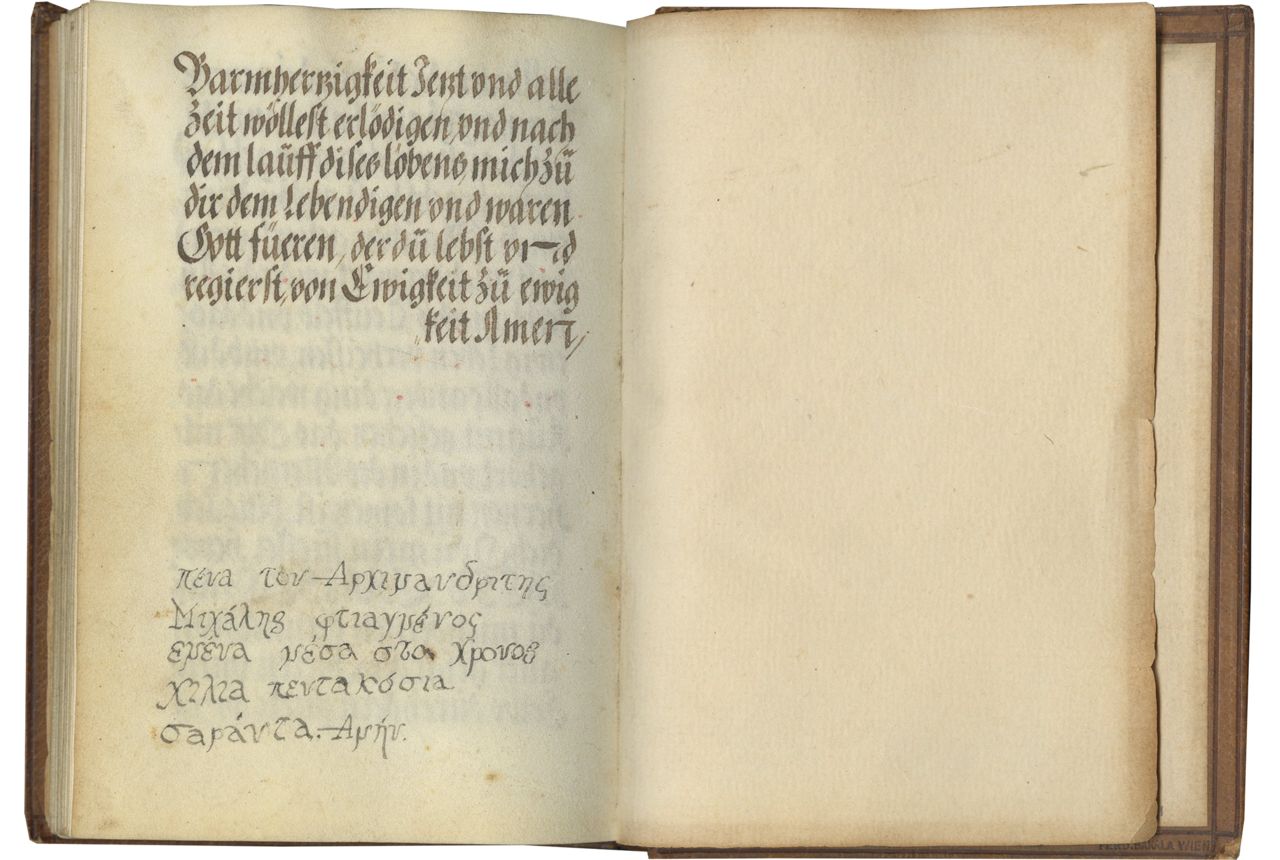 Barmhertzigkeit Jetzt vnd alle
Zeit wöllest erlödigen, vnd nach
dem laüff dises löbens, mich Zü
dir dem Lebendigen vnd waren
Gott füeren, der dü lebst vnd
regierst, von Ewigkeit Zü ewig
keit Amen,
πένα του Αρχιμανδρίτης
Μιχάλης φτιαγμένος
εμένα μέσα στο Χρονος
χιλια πεντακόσια
σαράντα. Αμήν.
FERD. BAKALA WIEN